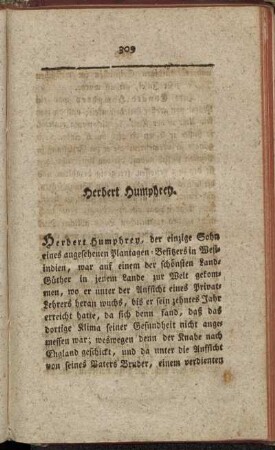 209
Herbert Humphrey.
Herbert Humphrey, der einzige Sohn
eines angesehenen Plantagen-Besitzers in West-
indien, war auf einem der schönsten Land-
Güther in jenem Lande zur Welt gekom-
men, wo er unter der Aufsicht eines Privat-
Lehrers heran wuchs, bis er sein zehntes Jahr
erreicht hatte, da sich denn fand, daß das
dortige Klima seiner Gesundheit nicht ange-
messen war; weswegen denn der Knabe nach
England geschickt, und da unter die Aufsicht
von seines Vaters Bruder, einem verdienten